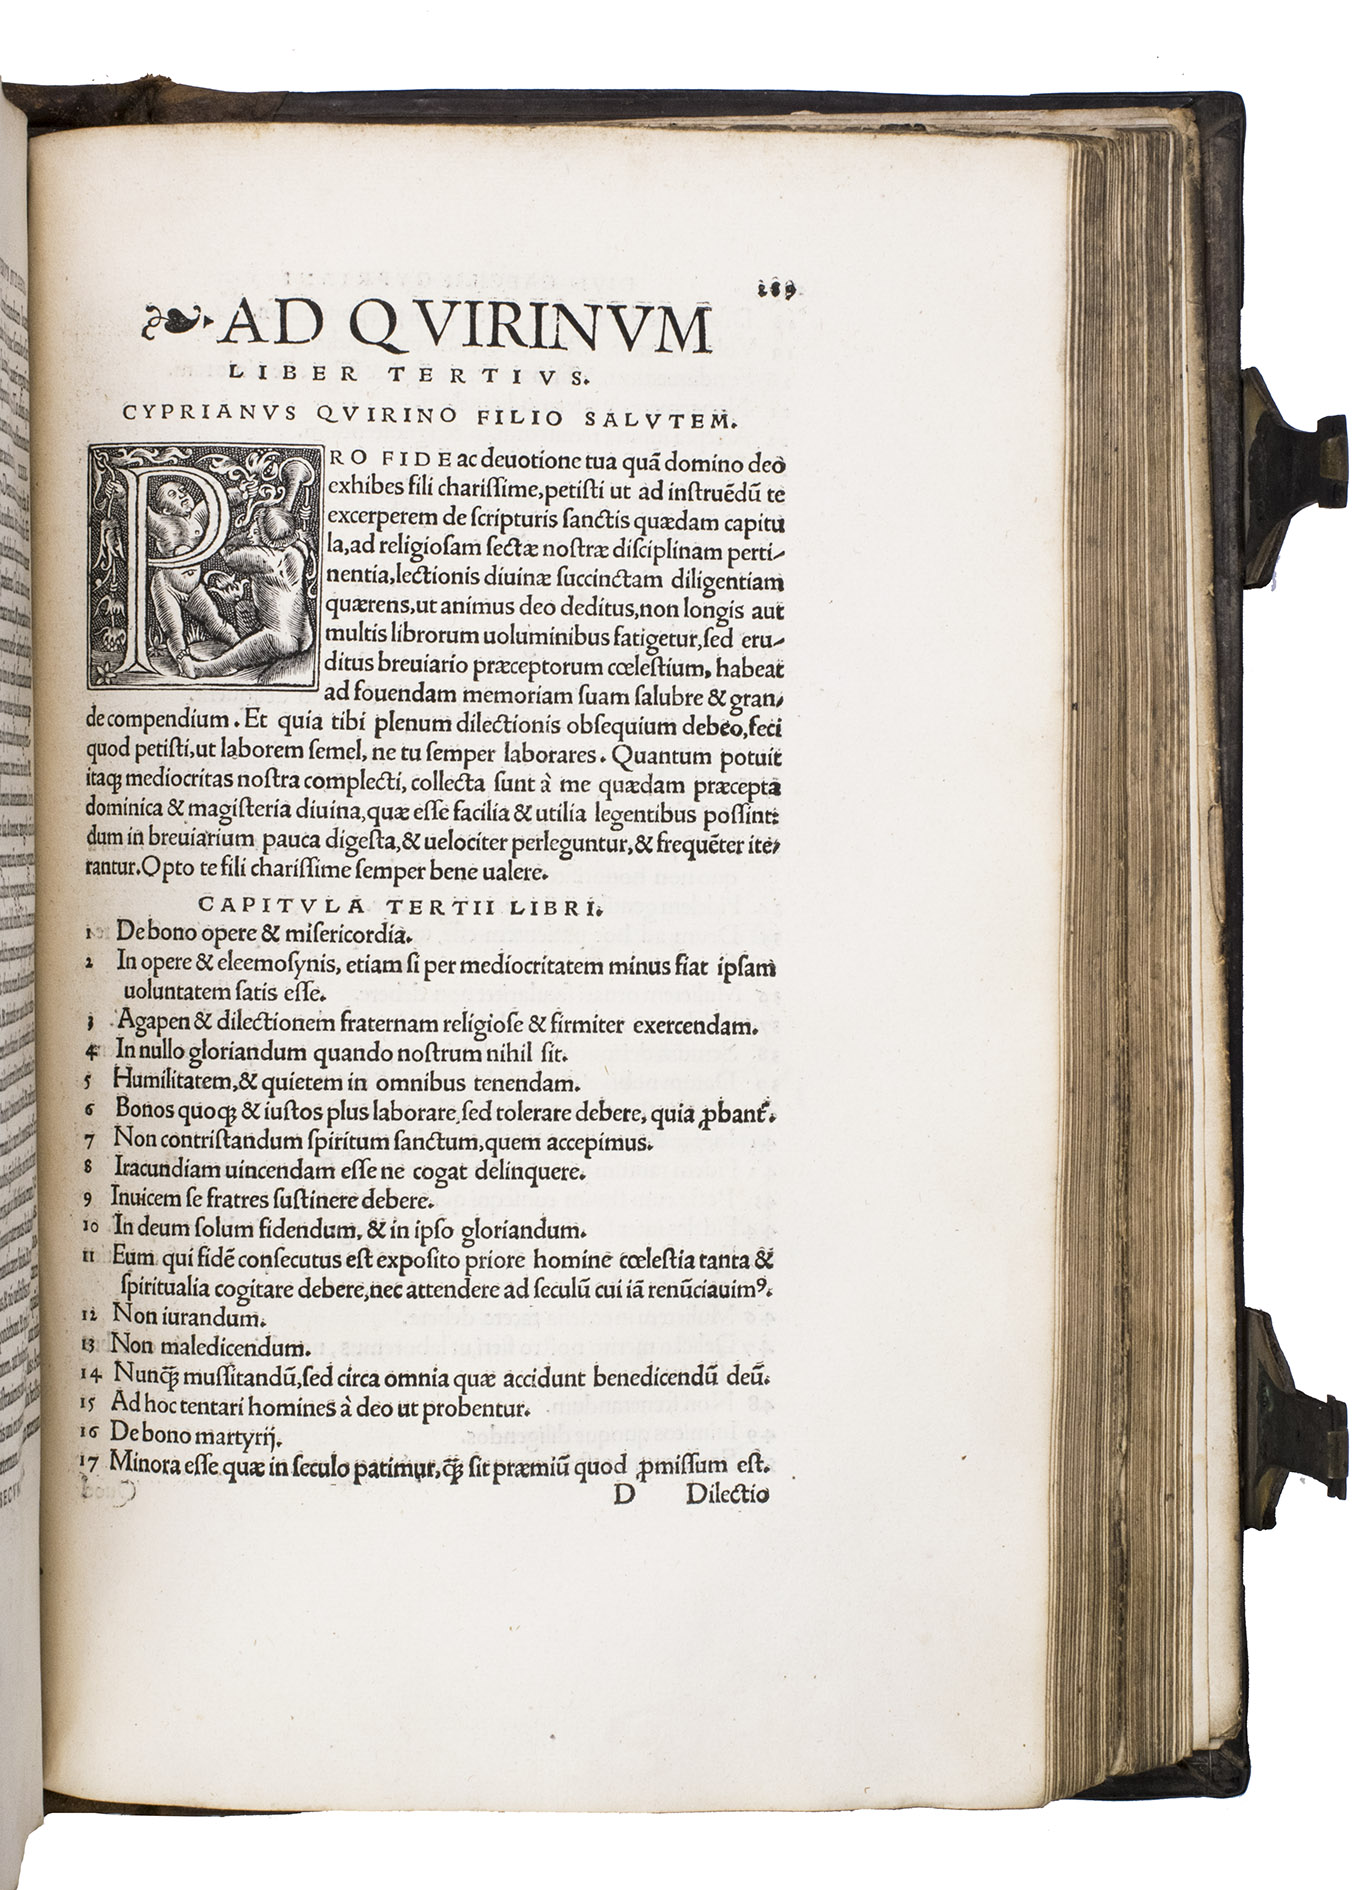 289
AD QVIRINVM
LIBER TERTIVS.
CYPRIANVS QVIRINO FILIO SALVTEM.
PRO FIDE ac deuotione tua quā domino deo
exhibes fili charissime, petisti ut ad instruēdū te
excerperem de scripturis sanctis quædam capitu
la, ad religiosam sectæ nostræ disciplinam perti-
nentia, lectionis diuinæ succinctam diligentiam
quærens, ut animus deo deditus, non longis aut
multis librorum uoluminibus fatigetur, sed eru-
ditus breuiario præceptorum cœlestium, habeat
ad fouendam memoriam suam salubre & gran-
de compendium. Et quia tibi plenum dilectionis obsequium debeo, feci
quod petisti, ut laborem semel, ne tu semper laborares. Quantum potuit
itaqꝫ mediocritas nostra complecti, collecta sunt à me quædam præcepta
dominica & magisteria diuina, quæ esse facilia & utilia legentibus possint:
dum in breuiarium pauca digesta, & uelociter perleguntur, & frequēter ite-
rantur. Opto te fili charissime semper bene ualere.
CAPITVLA TERTII LIBRI.
1 De bono opere & misericordia.
2 In opere & eleemosynis, etiam si per mediocritatem minus fiat ipsam
uoluntatem satis esse.
3 Agapen & dilectionem fraternam religiose & firmiter exercendam.
4 In nullo gloriandum quando nostrum nihil sit.
5 Humilitatem, & quietem in omnibus tenendam.
6 Bonos quoqꝫ & iustos plus laborare, sed tolerare debere, quia ꝓbant᷑.
7 Non contristandum spiritum sanctum, quem accepimus.
8 Iracundiam uincendam esse ne cogat delinquere.
9 Inuicem se fratres sustinere debere.
10 In deum solum fidendum, & in ipso gloriandum.
11 Eum qui fidē consecutus est exposito priore homine cœlestia tanta &
spiritualia cogitare debere, nec attendere ad seculū cui iā renūciauimꝰ.
12 Non iurandum.
13 Non maledicendum.
14 Nunq̄ꝫ mussitandū, sed circa omnia quæ accidunt benedicendū deū.
15 Ad hoc tentari homines à deo ut probentur.
16 De bono martyrij.
17 Minora esse quæ in seculo patimur, q̄ꝫ sit præmiū quod ꝓmissum est.
D Dilectio